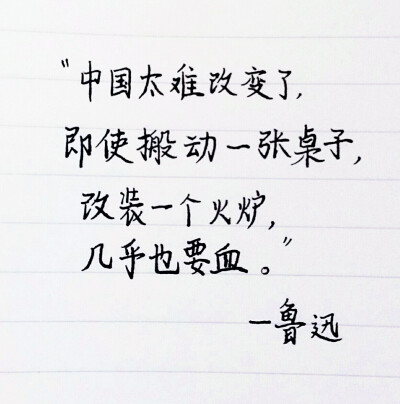 “中国太难改变了,
即使搬动一张桌子,
改装一个火炉,
几乎也要血。”
一鲁迅